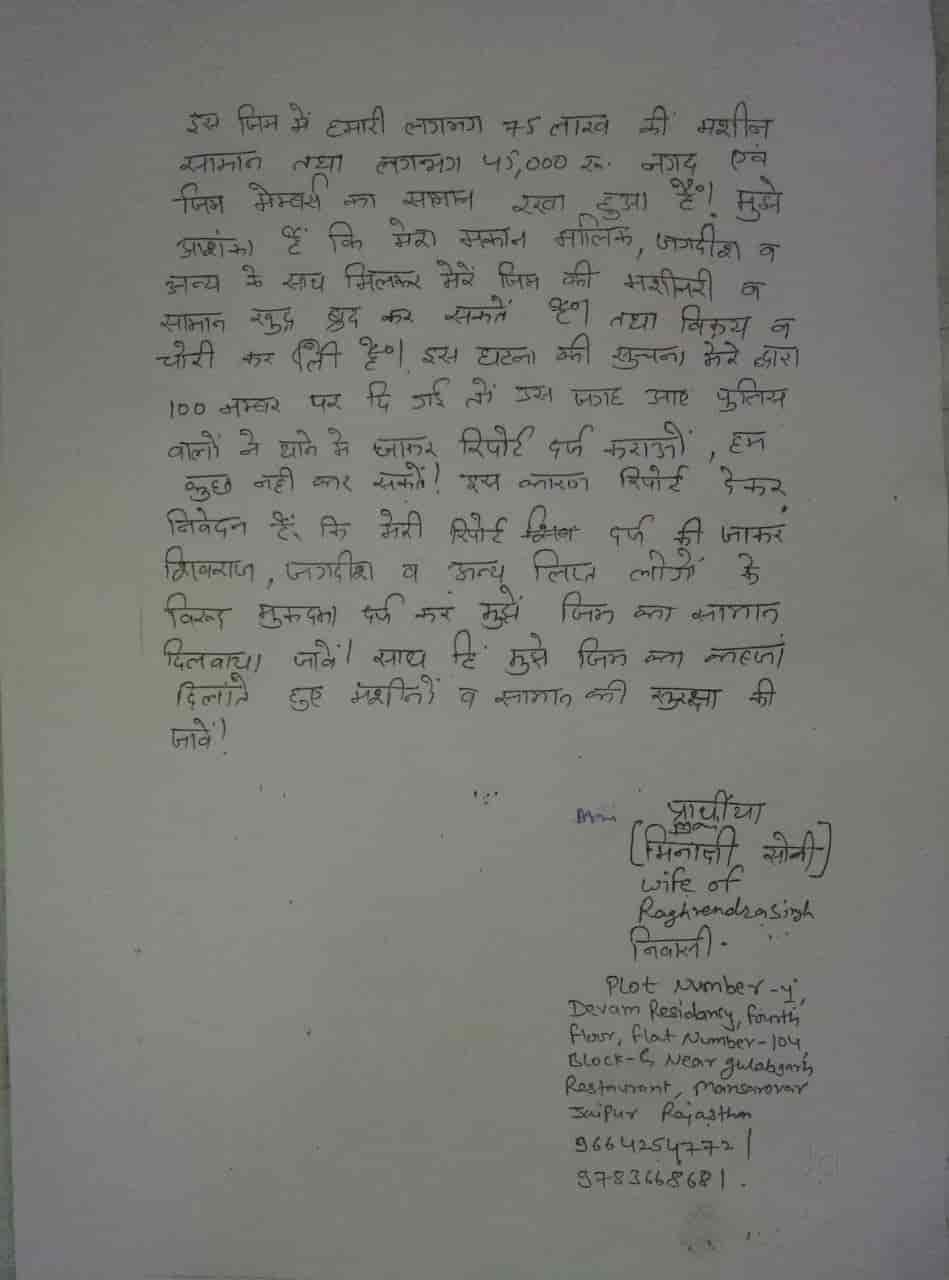 इस जिम में हमारी लगभग 75 लाख की मशीन
सामान तथा लगभग 45,000 रू. नगद एवं
जिम मेम्बर्स का सामान रखा हुआ है। मुझे
आशंका हैं कि मेरा मकान मालिक, जगदीश व
अन्य के साथ मिलकर मेरे जिम की मशीनरी व
सामान खुर्द बुर्द कर सकतें है। तथा विक्रय व
चोरी कर ली है। इस घटना की सुचना मेरे द्वारा
100 नम्बर पर दि गई तो उस जगह आए पुलिस
वालों ने थाने मे जाकर रिपोर्ट दर्ज कराओं, हम
कुछ नही कर सकतें! इस कारण रिपोर्ट देकर
निवेदन हैं, कि मेरी रिपोर्ट दर्ज की जाकर
शिवराज, जगदीश व अन्य लिप्त लोगों के
विरूद्ध मुकदमा दर्ज कर मुझें जिम का सामान
दिलवाया जावें! साथ हि मुझे जिम का कब्जा
दिलाते हुए मशीनों व सामान की सुरक्षा की
जावें!
प्रार्थीया
(मिनाक्षी सोनी)
wife of
Raghvendra Singh
निवासी.
Plot Number-4,
Devam Residancy, fourth
floor, flat Number-104,
Block- Near gulabgarh
Restaurant, Mansarovar
Jaipur Rajasthan
9664254772/
9783668681.